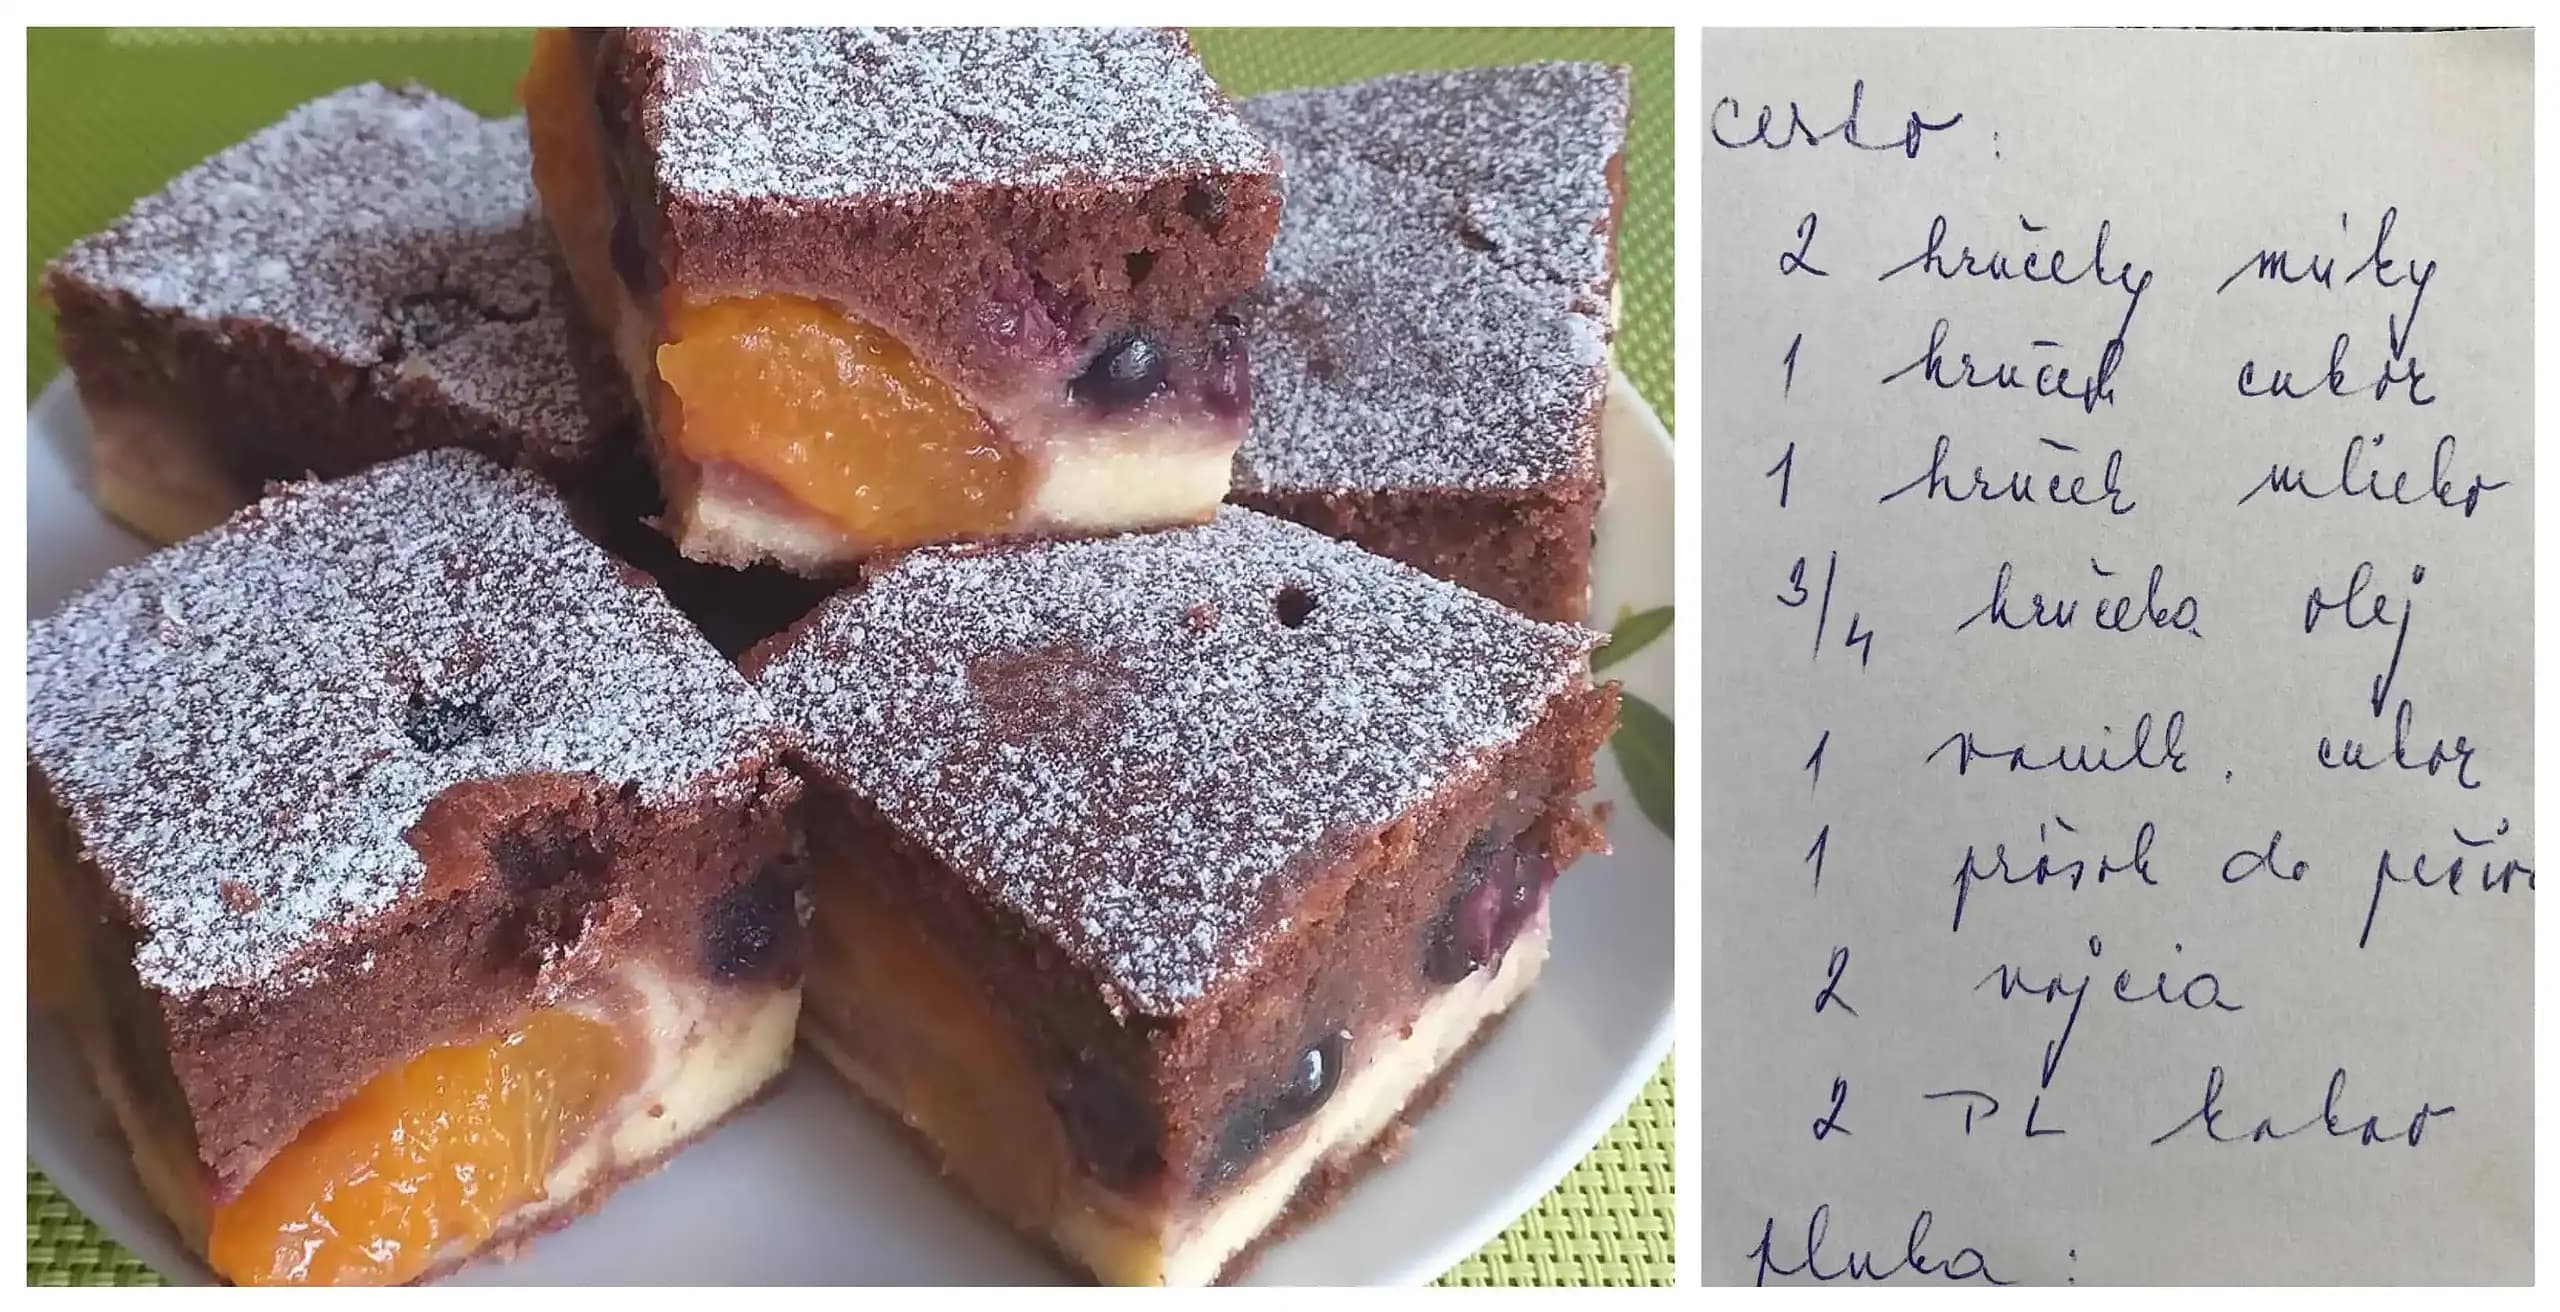 cesto:
2 hručeky múky
1 hruček cukor
1 hruček mlieko
3/4 hručeka olej
1 vanilk. cukor
1 prášok do pečiva
2 vajcia
2 PL kakao
plnka: